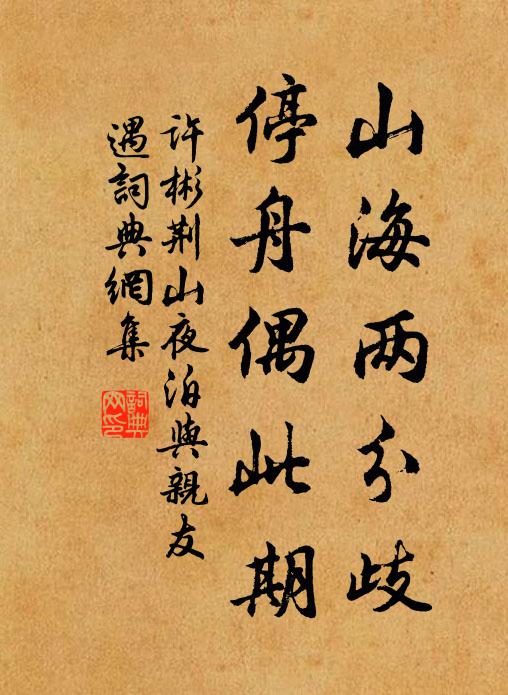 山海两分歧
停舟偶此期
许彬荆山夜泊與親友
遇詞典網集
詞典
网印